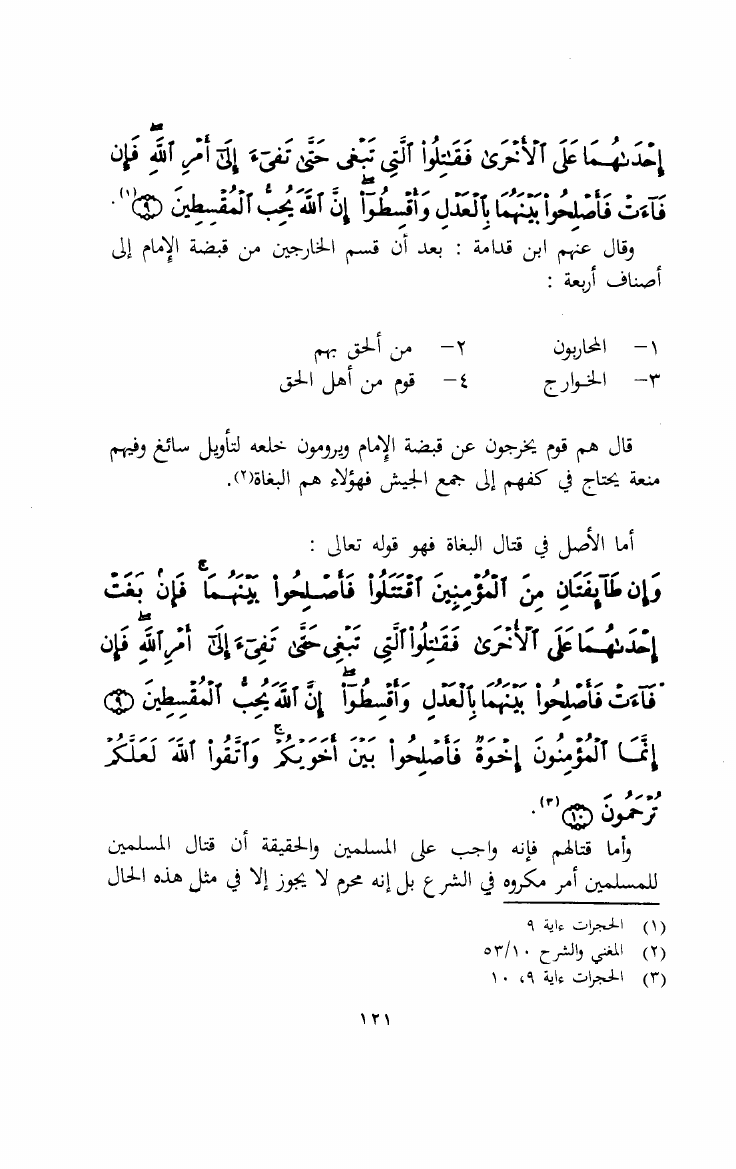 إِحْدَىٰهُمَا عَلَى ٱلْأُخْرَىٰ فَقَٰتِلُوا۟ ٱلَّتِى تَبْغِى حَتَّىٰ تَفِىٓءَ إِلَىٰٓ أَمْرِ ٱللَّهِ ۖ فَإِن
فَآءَتْ فَأَصْلِحُوا۟ بَيْنَهُمَا بِٱلْعَدْلِ وَأَقْسِطُوٓا۟ ۖ إِنَّ ٱللَّهَ يُحِبُّ ٱلْمُقْسِطِينَ ﴿٩﴾ (١).
وقال عنهم ابن قدامة : بعد أن قسم الخارجين من قبضة الإمام إلى
أصناف أربعة :
١- المحاربون ٢- من ألحق بهم
٣- الخوارج ٤- قوم من أهل الحق
قال هم قوم يخرجون عن قبضة الإمام ويرومون خلعه لتأويل سائغ وفيهم
منعة يحتاج في كفهم إلى جمع الجيش فهؤلاء هم البغاة(٢).
أما الأصل في قتال البغاة فهو قوله تعالى :
وَإِن طَآئِفَتَانِ مِنَ ٱلْمُؤْمِنِينَ ٱقْتَتَلُوا۟ فَأَصْلِحُوا۟ بَيْنَهُمَا ۖ فَإِنۢ بَغَتْ
إِحْدَىٰهُمَا عَلَى ٱلْأُخْرَىٰ فَقَٰتِلُوا۟ ٱلَّتِى تَبْغِى حَتَّىٰ تَفِىٓءَ إِلَىٰٓ أَمْرِ ٱللَّهِ ۖ فَإِن
فَآءَتْ فَأَصْلِحُوا۟ بَيْنَهُمَا بِٱلْعَدْلِ وَأَقْسِطُوٓا۟ ۖ إِنَّ ٱللَّهَ يُحِبُّ ٱلْمُقْسِطِينَ ﴿٩﴾
إِنَّمَا ٱلْمُؤْمِنُونَ إِخْوَةٌ فَأَصْلِحُوا۟ بَيْنَ أَخَوَيْكُمْ ۚ وَٱتَّقُوا۟ ٱللَّهَ لَعَلَّكُمْ
تُرْحَمُونَ ﴿١٠﴾ (٣).
وأما قتالهم فإنه واجب على المسلمين والحقيقة أن قتال المسلمين
للمسلمين أمر مكروه في الشرع بل إنه محرم لا يجوز إلا في مثل هذه الحال
(١) الحجرات ءاية ٩
(٢) المغني والشرح ٥٣/١٠
(٣) الحجرات ءاية ٩، ١٠
١٢١